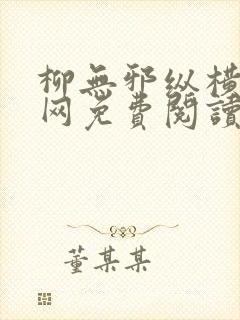 柳無邪纵横
网免費閱讀
董某某